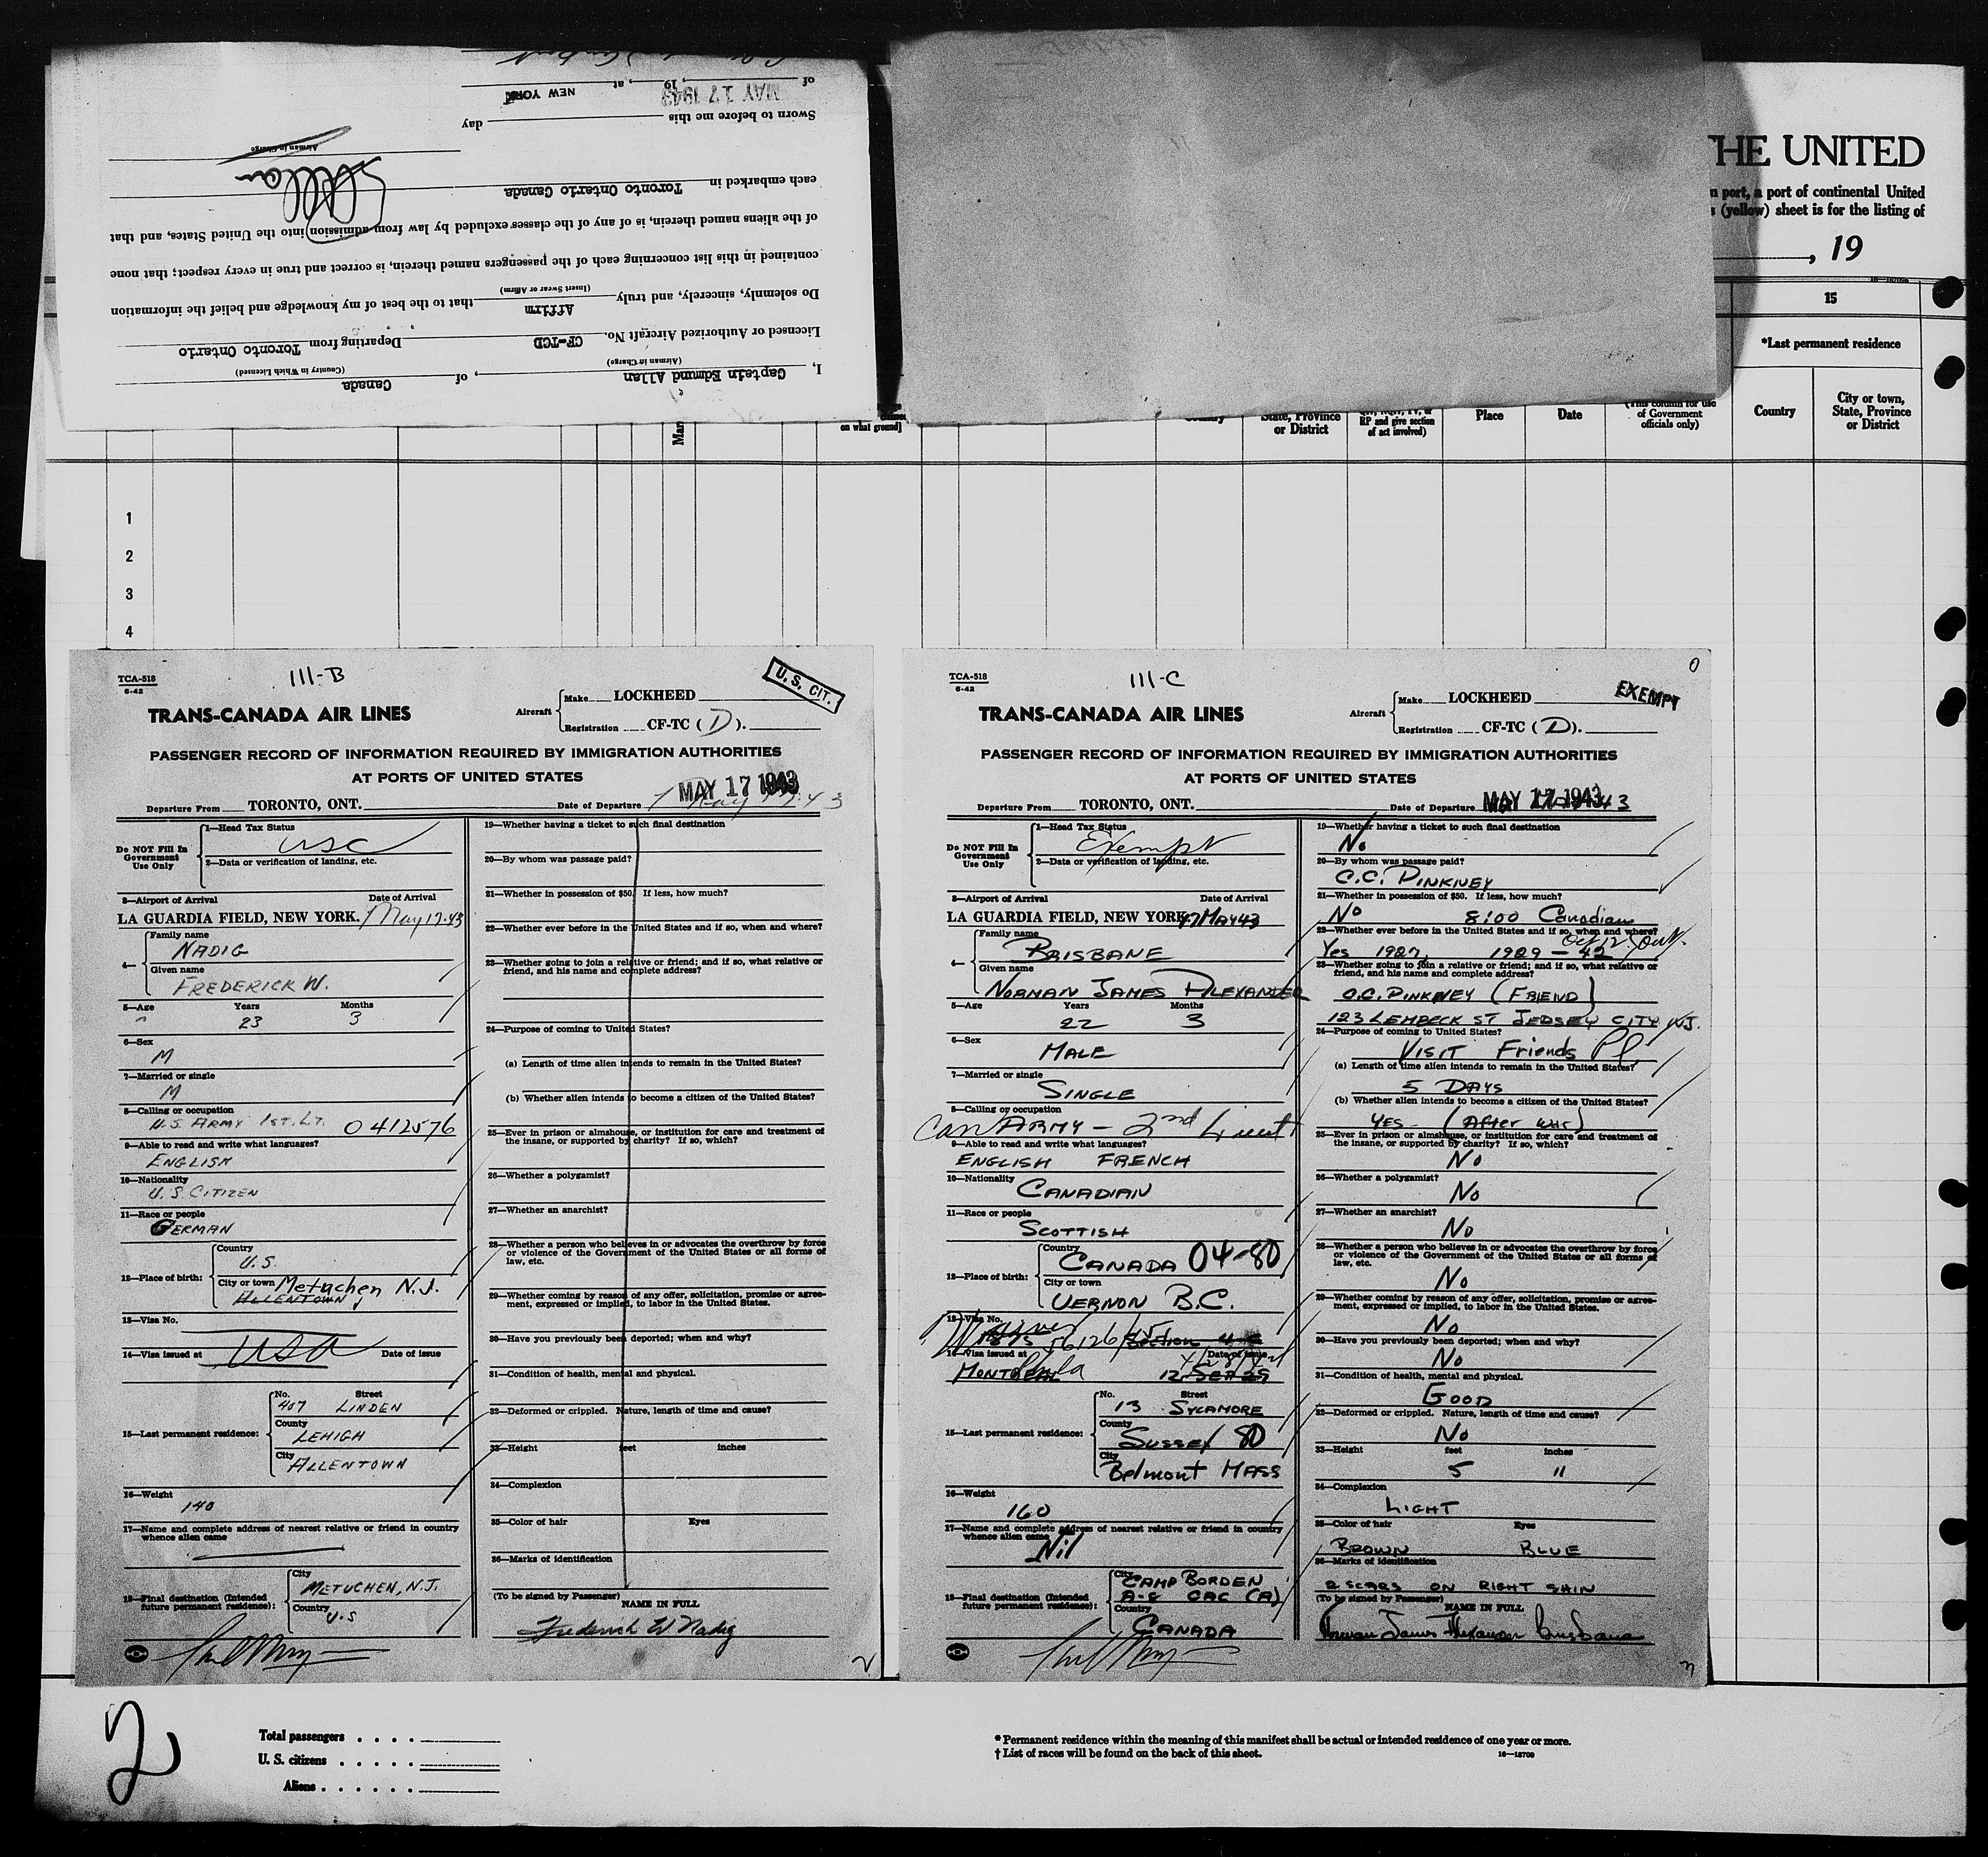 THE UNITED
n port, a port of continental United
s (yellow) sheet is for the listing of
, 19
15
*Last permanent residence
Country
City or town,
State, Province
or District
of 19 , at
MAY 17 1943 NEW YORK
Sworn to before me this day
Airman in Charge
Allan
each embarked in Toronto Ontario Canada
of the aliens named therein, is of any of the classes excluded by law from admission into the United States, and that
contained in this list concerning each of the passengers named therein, is correct and true in every respect; that none
Do solemnly, sincerely, and truly Affirm that to the best of my knowledge and belief the information
(Insert Swear or Affirm)
Licensed or Authorized Aircraft No. CF-TCD Departing from Toronto Ontario
(Airman in Charge) (Country in Which Licensed)
I, Captain Edmund Allan , of Canada
Mar
on what ground]
Country
State, Province
or District
RP and give section
of act involved)
Place
Date
(This column for use
of Government
officials only)
1
2
3
4
TCA-518
6-42
111-B
U. S. CIT.
Aircraft
Make LOCKHEED
Registration CF-TC (D).
TRANS-CANADA AIR LINES
PASSENGER RECORD OF INFORMATION REQUIRED BY IMMIGRATION AUTHORITIES
AT PORTS OF UNITED STATES
MAY 17 1943
Departure From TORONTO, ONT. Date of Departure
Do NOT Fill In
Government
Use Only
1—Head Tax Status
USC
2—Data or verification of landing, etc.
3—Airport of Arrival Date of Arrival
LA GUARDIA FIELD, NEW YORK. May 17·43
4— Family name
NADIG
Given name
FREDERICK W.
5—Age Years Months
23 3
6—Sex
M
7—Married or single
M
8—Calling or occupation
U.S. ARMY 1ST. LT. 0412576
9—Able to read and write what languages?
ENGLISH
10—Nationality
U.S. CITIZEN
11—Race or people
GERMAN
12—Place of birth:
Country
U.S.
City or town Metuchen N.J.
ALLENTOWN
13—Visa No.
USA
14—Visa issued at Date of issue
15—Last permanent residence:
No. Street
407 LINDEN
County
LEHIGH
City
ALLENTOWN
16—Weight
140
17—Name and complete address of nearest relative or friend in country
whence alien came
18—Final destination (Intended
future permanent residence):
City
METUCHEN, N.J.
Country
U.S
19—Whether having a ticket to such final destination
20—By whom was passage paid?
21—Whether in possession of $50. If less, how much?
22—Whether ever before in the United States and if so, when and where?
23—Whether going to join a relative or friend; and if so, what relative or
friend, and his name and complete address?
24—Purpose of coming to United States?
(a) Length of time alien intends to remain in the United States?
(b) Whether alien intends to become a citizen of the United States?
25—Ever in prison or almshouse, or institution for care and treatment of
the insane, or supported by charity? If so, which?
26—Whether a polygamist?
27—Whether an anarchist?
28—Whether a person who believes in or advocates the overthrow by force
or violence of the Government of the United States or all forms of
law, etc.
29—Whether coming by reason of any offer, solicitation, promise or agree-
ment, expressed or implied, to labor in the United States.
30—Have you previously been deported; when and why?
31—Condition of health, mental and physical.
32—Deformed or crippled. Nature, length of time and cause?
33—Height feet inches
34—Complexion
35—Color of hair Eyes
36—Marks of identification
(To be signed by Passenger)
NAME IN FULL
Frederick W Nadig
2
TCA-518
6-42
111-C
0
EXEMPT
Aircraft
Make LOCKHEED
Registration CF-TC (D).
TRANS-CANADA AIR LINES
PASSENGER RECORD OF INFORMATION REQUIRED BY IMMIGRATION AUTHORITIES
AT PORTS OF UNITED STATES
Departure From TORONTO, ONT. Date of Departure MAY 17 1943
Do NOT Fill In
Government
Use Only
1—Head Tax Status
Exempt
2—Data or verification of landing, etc.
3—Airport of Arrival Date of Arrival
LA GUARDIA FIELD, NEW YORK. 17 MAY 43
4— Family name
BRISBANE
Given name
NORMAN JAMES ALEXANDER
5—Age Years Months
22 3
6—Sex
MALE
7—Married or single
SINGLE
8—Calling or occupation
Can ARMY - 2nd Lieut
9—Able to read and write what languages?
ENGLISH FRENCH
10—Nationality
CANADIAN
11—Race or people
SCOTTISH
12—Place of birth:
Country
CANADA 04-80
City or town
VERNON B.C.
13—Visa No.
56126
14—Visa issued at Date of issue
MONTREAL 12 SEP 29
15—Last permanent residence:
No. Street
13 SYCAMORE
County
SUSSEX 80
City
Belmont MASS
16—Weight
160
17—Name and complete address of nearest relative or friend in country
whence alien came
Nil
18—Final destination (Intended
future permanent residence):
City
CAMP BORDEN
CAC (A)
Country
CANADA
19—Whether having a ticket to such final destination
No
20—By whom was passage paid?
C.C. PINKNEY
21—Whether in possession of $50. If less, how much?
No 8:00 Canadian
22—Whether ever before in the United States and if so, when and where?
Yes 1927, 1929 - 42
23—Whether going to join a relative or friend; and if so, what relative or
friend, and his name and complete address?
C.C. PINKNEY (FRIEND)
123 LEMBECK ST JERSEY CITY N.J.
24—Purpose of coming to United States?
VISIT Friends
(a) Length of time alien intends to remain in the United States?
5 DAYS
(b) Whether alien intends to become a citizen of the United States?
YES- (After war)
25—Ever in prison or almshouse, or institution for care and treatment of
the insane, or supported by charity? If so, which?
No
26—Whether a polygamist?
No
27—Whether an anarchist?
No
28—Whether a person who believes in or advocates the overthrow by force
or violence of the Government of the United States or all forms of
law, etc.
No
29—Whether coming by reason of any offer, solicitation, promise or agree-
ment, expressed or implied, to labor in the United States.
No
30—Have you previously been deported; when and why?
No
31—Condition of health, mental and physical.
GOOD
32—Deformed or crippled. Nature, length of time and cause?
No
33—Height feet inches
5 11
34—Complexion
LIGHT
35—Color of hair Eyes
BROWN BLUE
36—Marks of identification
2 SCARS ON RIGHT SHIN
(To be signed by Passenger)
NAME IN FULL
Norman James Alexander Brisbane
2
Total passengers . . . .
U. S. citizens . . . . .
Aliens . . . . . .
* Permanent residence within the meaning of this manifest shall be actual or intended residence of one year or more.
† List of races will be found on the back of this sheet.
16—18709